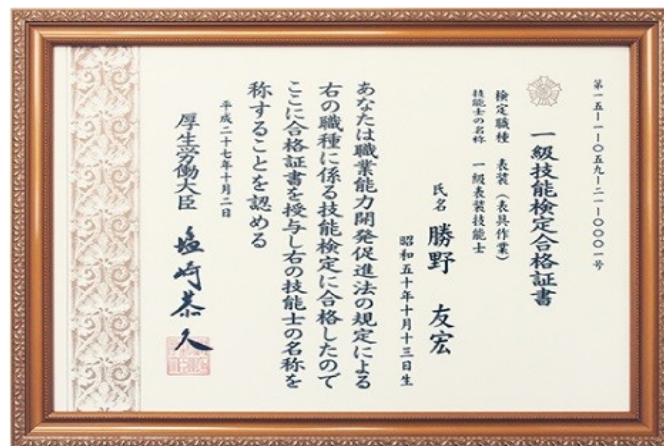 第一五ー一ー〇五九ー二一ー〇〇〇一号
一級技能検定合格証書
検定職種 表装(表具作業)
技能士の名称 一級表装技能士
氏名 勝野 友宏
昭和五十年十月十三日生
あなたは職業能力開発促進法の規定による
右の職種に係る技能検定に合格したので
ここに合格証書を授与し右の技能士の名称を
称することを認める
平成二十七年十月二日
厚生労働大臣 塩崎恭久